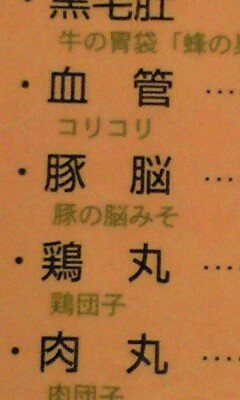 ・黒毛肚
牛の胃袋「蜂の
・血 管 …
コリコリ
・豚 脳 …
豚の脳みそ
・鶏 丸 …
鶏団子
・肉 丸 …
肉団子